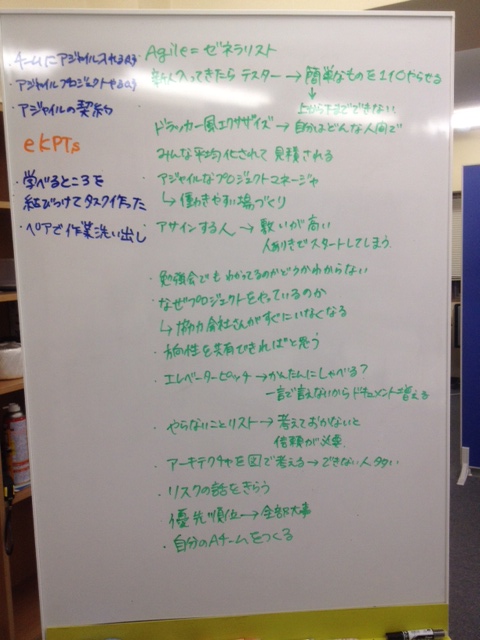 ・チームにアジャイル入れる時
・アジャイルプロジェクトやる時
・アジャイルの契約
eKPTs
・学べるところを
結びつけてタスク作った
・ペアで作業洗い出し
Agile=ゼネラリスト
新人入ってきたらテスター→簡単なものを1から10やらせる
↓
上から下までできない
・ドラッカー風エクササイズ→自分はどんな人間で
みんな平均化されて見積される
・アジャイルなプロジェクトマネージャ
↳働きやすい場づくり
・アサインする人→敷いが高い
人ありきでスタートしてしまう.
・勉強会でもわかってるのかどうかわからない
・なぜプロジェクトをやっているのか
↳協力会社さんがすぐにいなくなる
・方向性を共有できればと思う
・エレベーターピッチ→かんたんにしゃべる?
一言で言えないからドキュメント増える
・やらないことリスト→考えておかないと
信頼が必要.
・アーキテクチャを図で考える→できない人多い
・リスクの話をきらう
優先順位→全部大事
・自分のAチームをつくる